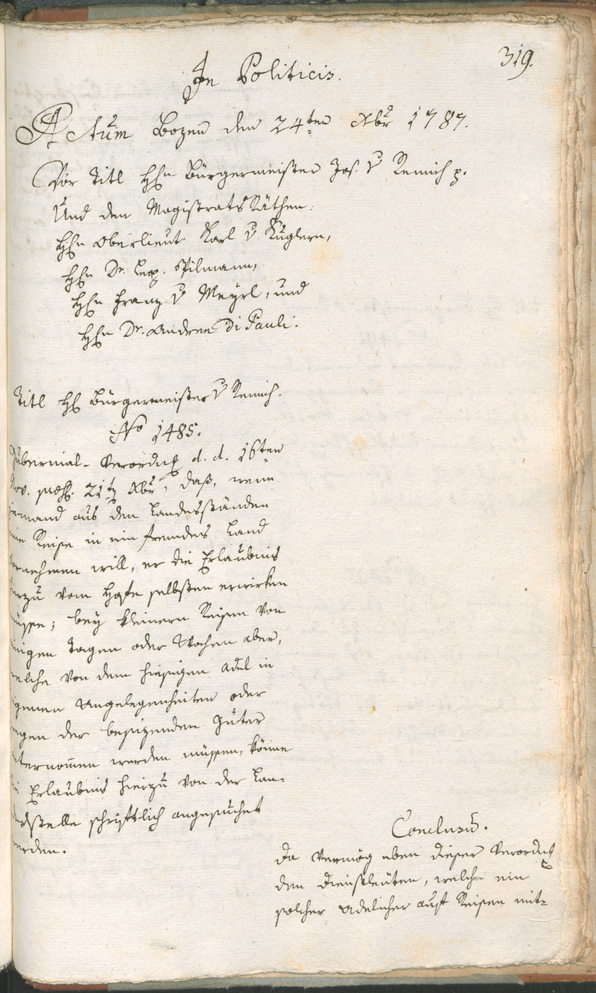 319.
In Politicis.
Actum Bozen den 24ten Xbr 1787.
Vor Titl Hhn Bürgermeister Jos. v Remich p.
Und den Magistrats Räthen:
Hhn Oberlieut. Karl v Kuglern,
Hhn Dr. Leop. Pilmann,
Hhn Franz v Meyrl, und
Hhn Dr. Andree Di Pauli.
Titl Hh Bürgermeister v Remich.
No 1485.
Gubernial-Verordng d. d. 16ten
9ov. 21ten Xbr, daß, wenn
jemand aus den Landesständen
eine Reise in ein fremdes Land
vornehmen will, er die Erlaubnis
hierzu vom Hofe selbsten erwirken
müsse; bey kleinern Reisen von
einigen Tagen oder Wochen aber,
welche von dem hiesigen Adel in
eigenen Angelegenheiten oder
wegen der besizenden Güter
unternommen werden müssen, könne
die Erlaubnis hierzu von der Lan-
desstelle schriftlich angesuchet
werden.
Conclusum.
Da vermög eben dieser Verordng
den Dienstleuten, welche ein
solcher Adelicher auf Reisen mit-